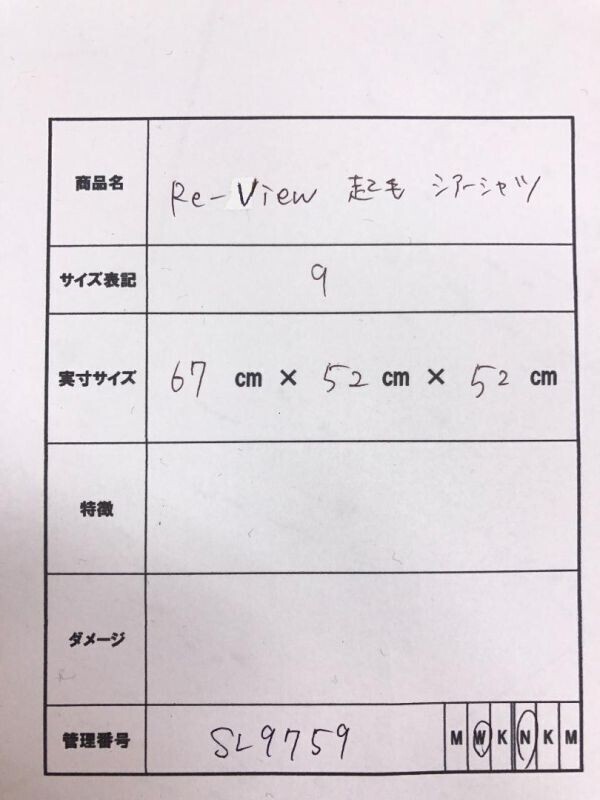 商品名 Re-View 起毛 シアーシャツ
サイズ表記 9
実寸サイズ 67 cm × 52 cm × 52 cm
特徴
ダメージ
管理番号 SL9759 M W K N K M